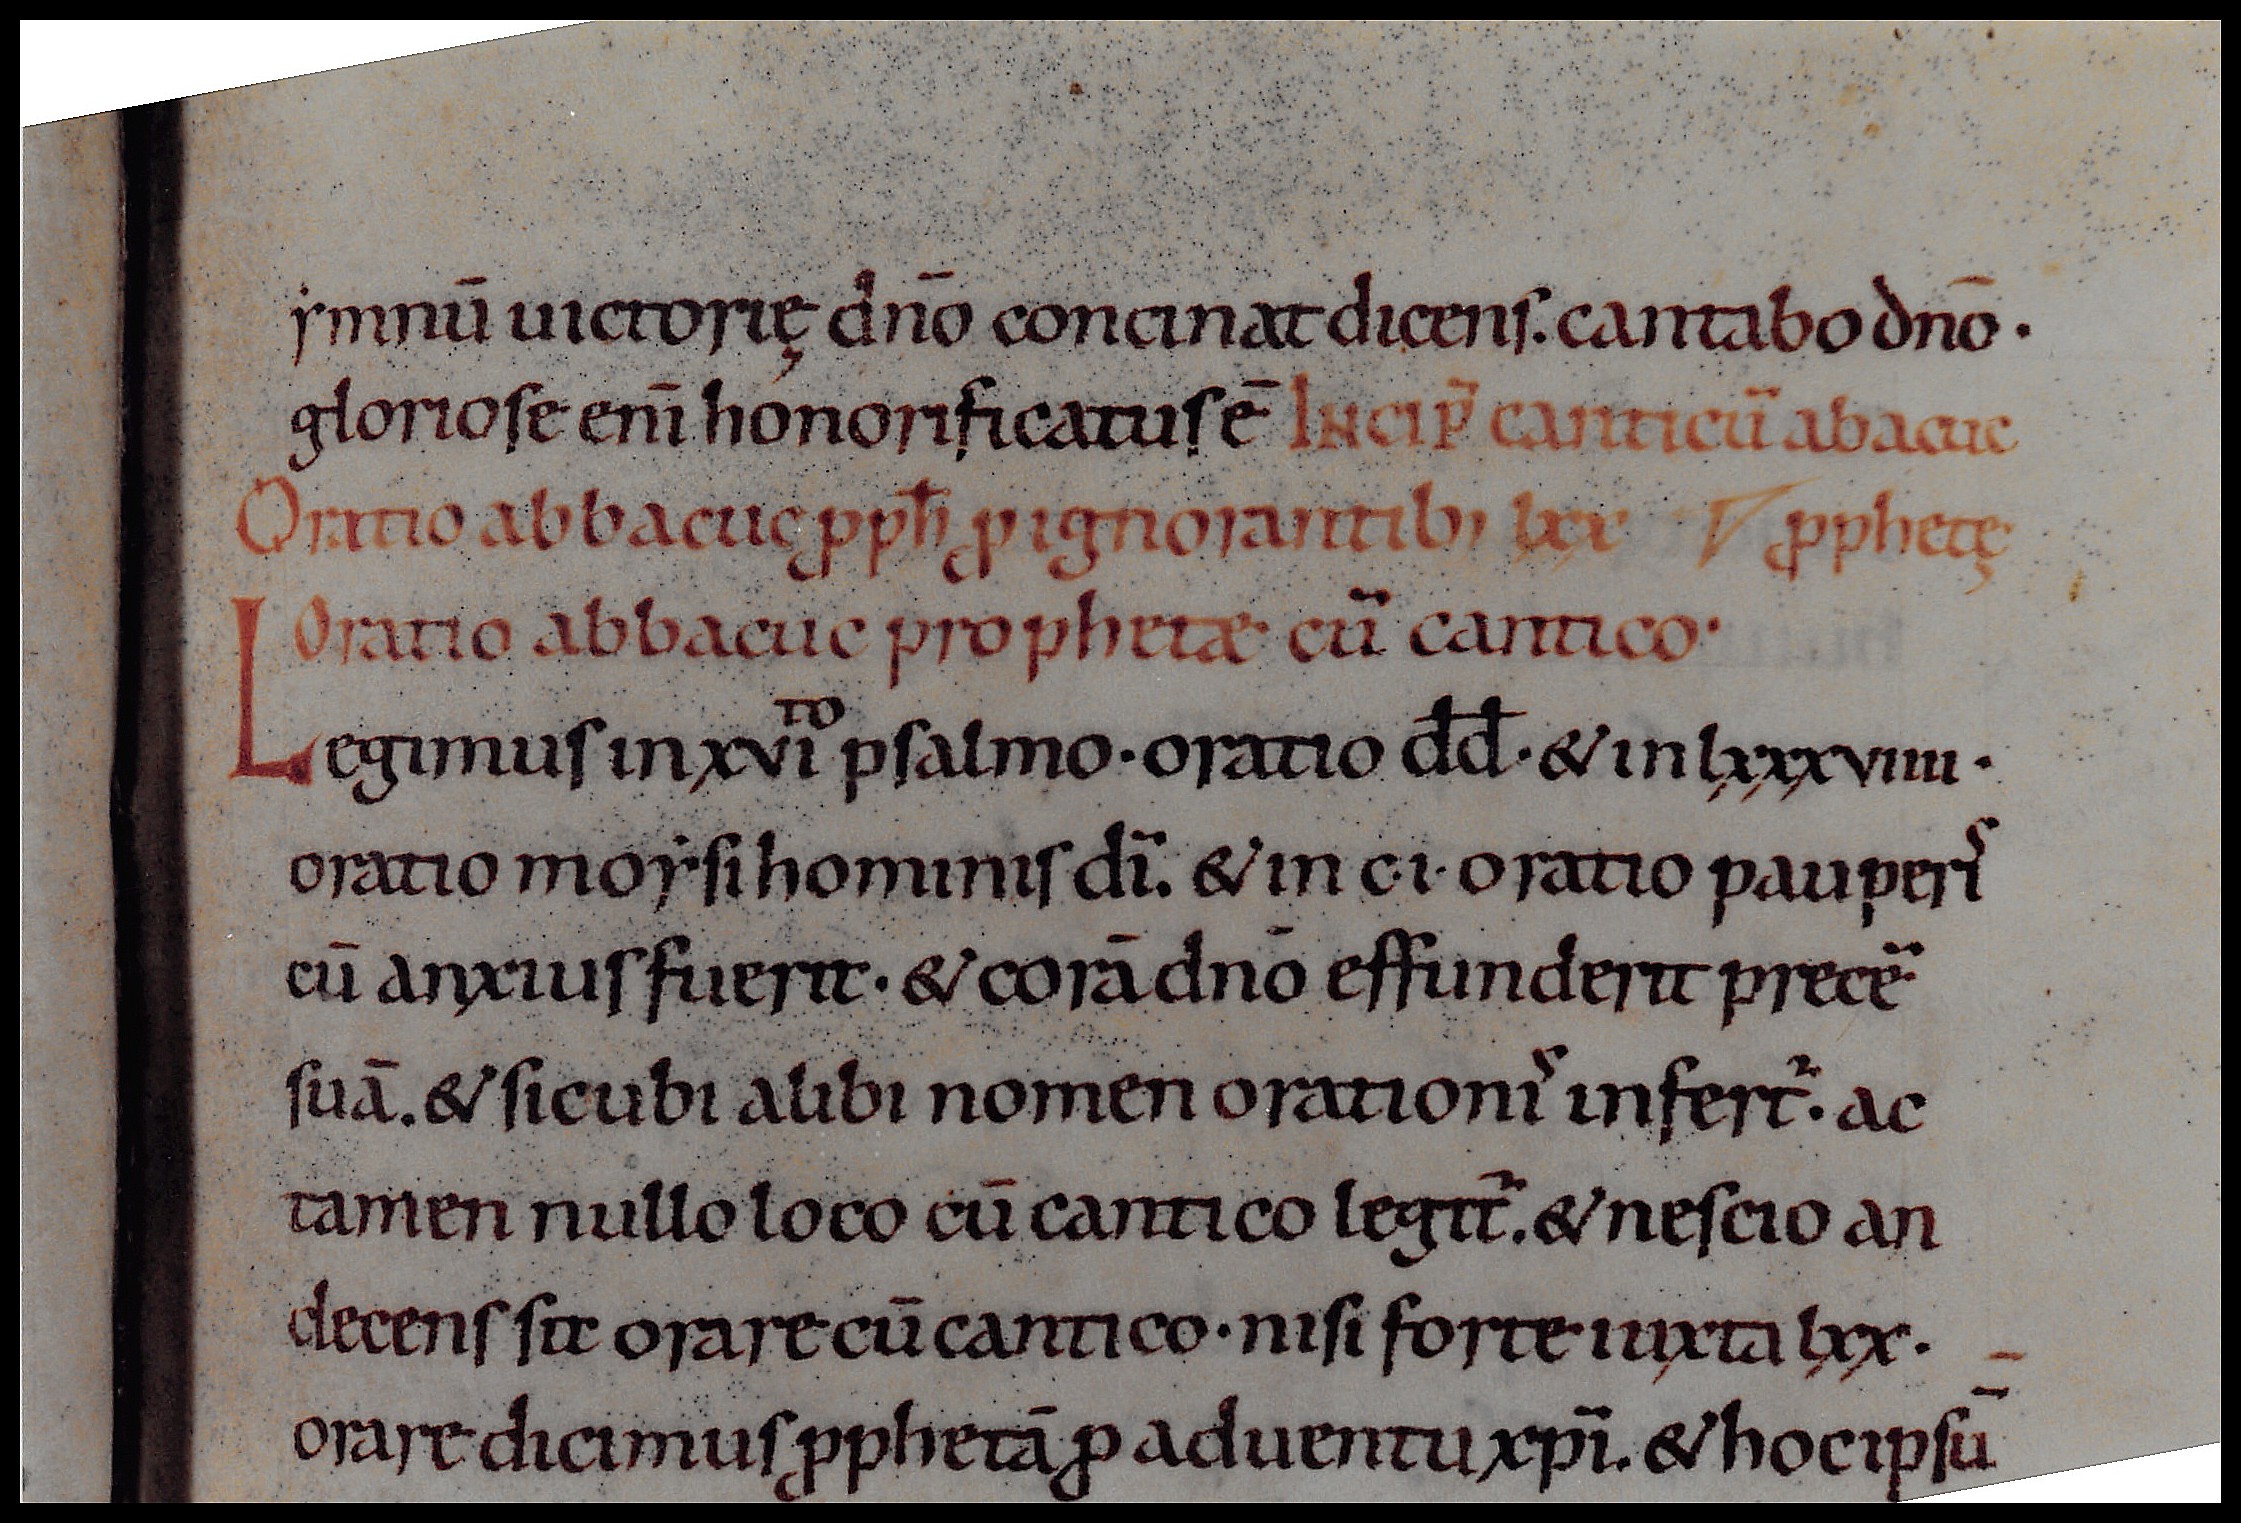 ẏmnū uictorię dn̄o concinat dicens. cantabo dn̄o.
gloriose enī honorificatus ē Incip̄ canticū abacuc
Oratio abbacuc ꝓph̄ ꝓ ignorantib; lxx ꝓphetę
Oratio abbacuc prophetae cū cantico.
Legimus in xvi to psalmo. oratio dd̄. & in lxxxviiii.
oratio moẏsi hominis dī. & in c.i. oratio pauperis
cū anxius fuerit. & corā dn̄o effunderit precē
suā. & sicubi alibi nomen orationis infert᷑. ac
tamen nullo loco cū cantico legit᷑. & nescio an
decens sit orare cū cantico. nisi forte iuxta lxx.
orare dicimus ꝓphetā ꝓ aduentu xp̄i. & hoc ipsū